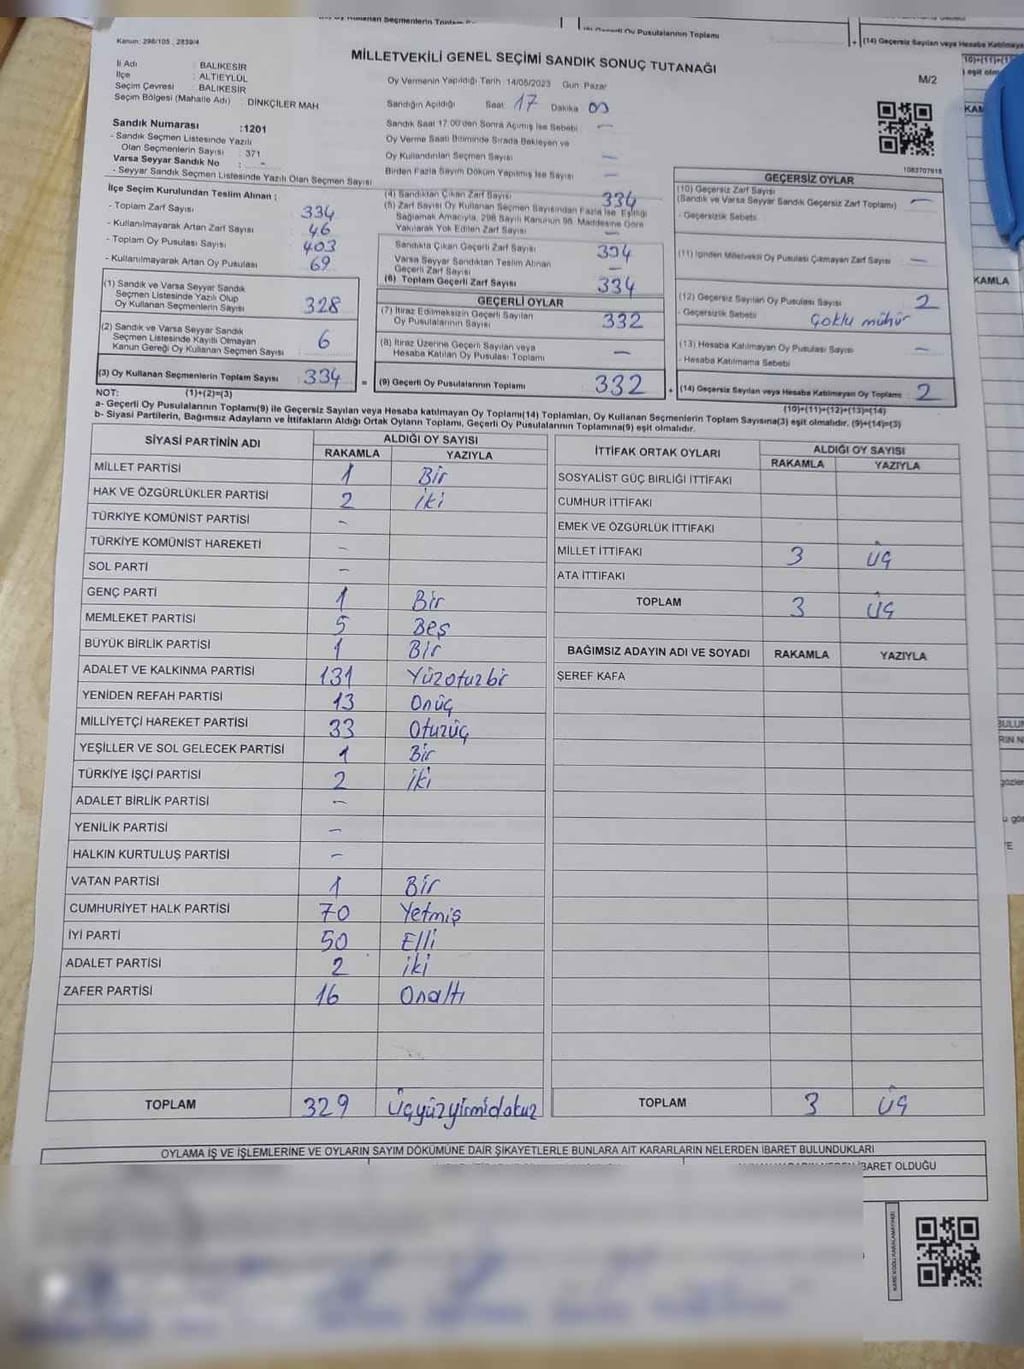 (14) Geçersiz Sayılan veya Hesaba Katılmayan
Kanun: 298/105 ; 2839/4
MİLLETVEKİLİ GENEL SEÇİMİ SANDIK SONUÇ TUTANAĞI
M/2
İl Adı : BALIKESİR
İlçe : ALTIEYLÜL
Seçim Çevresi : BALIKESİR
Seçim Bölgesi (Mahalle Adı) : DİNKÇİLER MAH
Oy Vermenin Yapıldığı Tarih 14/05/2023 Gün Pazar
Sandığın Açıldığı Saat 17 Dakika 00
Sandık Saat 17:00'den Sonra Açılmış İse Sebebi —
Oy Verme Saati Bitiminde Sırada Bekleyen ve
Oy Kullandırılan Seçmen Sayısı —
Birden Fazla Sayım Döküm Yapılmış İse Sayısı —
Sandık Numarası :1201
- Sandık Seçmen Listesinde Yazılı
Olan Seçmenlerin Sayısı : 371
Varsa Seyyar Sandık No : -
- Seyyar Sandık Seçmen Listesinde Yazılı Olan Seçmen Sayısı
1083707918
İlçe Seçim Kurulundan Teslim Alınan :
- Toplam Zarf Sayısı 334
- Kullanılmayarak Artan Zarf Sayısı 46
- Toplam Oy Pusulası Sayısı 403
- Kullanılmayarak Artan Oy Pusulası 69
(1) Sandık ve Varsa Seyyar Sandık
Seçmen Listesinde Yazılı Olup
Oy Kullanan Seçmenlerin Sayısı 328
(2) Sandık ve Varsa Seyyar Sandık
Seçmen Listesinde Kayıtlı Olmayan
Kanun Gereği Oy Kullanan Seçmen Sayısı 6
(3) Oy Kullanan Seçmenlerin Toplam Sayısı 334 =
(4) Sandıktan Çıkan Zarf Sayısı 334
(5) Zarf Sayısı Oy Kullanan Seçmen Sayısından Fazla İse, Eşitliği
Bağlamak Amacıyla, 298 Sayılı Kanunun 98. Maddesine Göre
Yakılarak Yok Edilen Zarf Sayısı —
Sandıkta Çıkan Geçerli Zarf Sayısı 334
Varsa Seyyar Sandıktan Teslim Alınan
Geçerli Zarf Sayısı —
(6) Toplam Geçerli Zarf Sayısı 334
GEÇERLİ OYLAR
(7) İtiraz Edilmeksizin Geçerli Sayılan
Oy Pusulalarının Sayısı 332
(8) İtiraz Üzerine Geçerli Sayılan veya
Hesaba Katılan Oy Pusulası Toplamı —
(9) Geçerli Oy Pusulalarının Toplamı 332 +
GEÇERSİZ OYLAR
(10) Geçersiz Zarf Sayısı
(Sandık ve Varsa Seyyar Sandık Geçersiz Zarf Toplamı) —
- Geçersizlik Sebebi
(11) İçinden Milletvekili Oy Pusulası Çıkmayan Zarf Sayısı —
(12) Geçersiz Sayılan Oy Pusulası Sayısı 2
- Geçersizlik Sebebi Çoklu mühür
(13) Hesaba Katılmayan Oy Pusulası Sayısı —
- Hesaba Katılmama Sebebi
(14) Geçersiz Sayılan veya Hesaba Katılmayan Oy Toplamı 2
NOT: (1)+(2)=(3)
(10)+(11)+(12)+(13)=(14)
a- Geçerli Oy Pusulalarının Toplamı(9) ile Geçersiz Sayılan veya Hesaba katılmayan Oy Toplamı(14) Toplamları, Oy Kullanan Seçmenlerin Toplam Sayısına(3) eşit olmalıdır. (9)+(14)=(3)
b- Siyasi Partilerin, Bağımsız Adayların ve İttifakların Aldığı Ortak Oyların Toplamı, Geçerli Oy Pusulalarının Toplamına(9) eşit olmalıdır.
SİYASİ PARTİNİN ADI ALDIĞI OY SAYISI
RAKAMLA YAZIYLA
MİLLET PARTİSİ 1 Bir
HAK VE ÖZGÜRLÜKLER PARTİSİ 2 iki
TÜRKİYE KOMÜNİST PARTİSİ —
TÜRKİYE KOMÜNİST HAREKETİ —
SOL PARTİ —
GENÇ PARTİ 1 Bir
MEMLEKET PARTİSİ 5 Beş
BÜYÜK BİRLİK PARTİSİ 1 Bir
ADALET VE KALKINMA PARTİSİ 131 Yüzotuzbir
YENİDEN REFAH PARTİSİ 13 Onüç
MİLLİYETÇİ HAREKET PARTİSİ 33 Otuzüç
YEŞİLLER VE SOL GELECEK PARTİSİ 1 Bir
TÜRKİYE İŞÇİ PARTİSİ 2 iki
ADALET BİRLİK PARTİSİ —
YENİLİK PARTİSİ —
HALKIN KURTULUŞ PARTİSİ —
VATAN PARTİSİ 1 Bir
CUMHURİYET HALK PARTİSİ 70 Yetmiş
İYİ PARTİ 50 Elli
ADALET PARTİSİ 2 iki
ZAFER PARTİSİ 16 Onaltı
TOPLAM 329 Üçyüzyirmidokuz
İTTİFAK ORTAK OYLARI ALDIĞI OY SAYISI
RAKAMLA YAZIYLA
SOSYALİST GÜÇ BİRLİĞİ İTTİFAKI
CUMHUR İTTİFAKI
EMEK VE ÖZGÜRLÜK İTTİFAKI
MİLLET İTTİFAKI 3 Üç
ATA İTTİFAKI
TOPLAM 3 Üç
BAĞIMSIZ ADAYIN ADI VE SOYADI RAKAMLA YAZIYLA
ŞEREF KAFA
TOPLAM 3 Üç
OYLAMA İŞ VE İŞLEMLERİNE VE OYLARIN SAYIM DÖKÜMÜNE DAİR ŞİKAYETLERLE BUNLARA AİT KARARLARIN NELERDEN İBARET BULUNDUKLARI
İBARET OLDUĞU